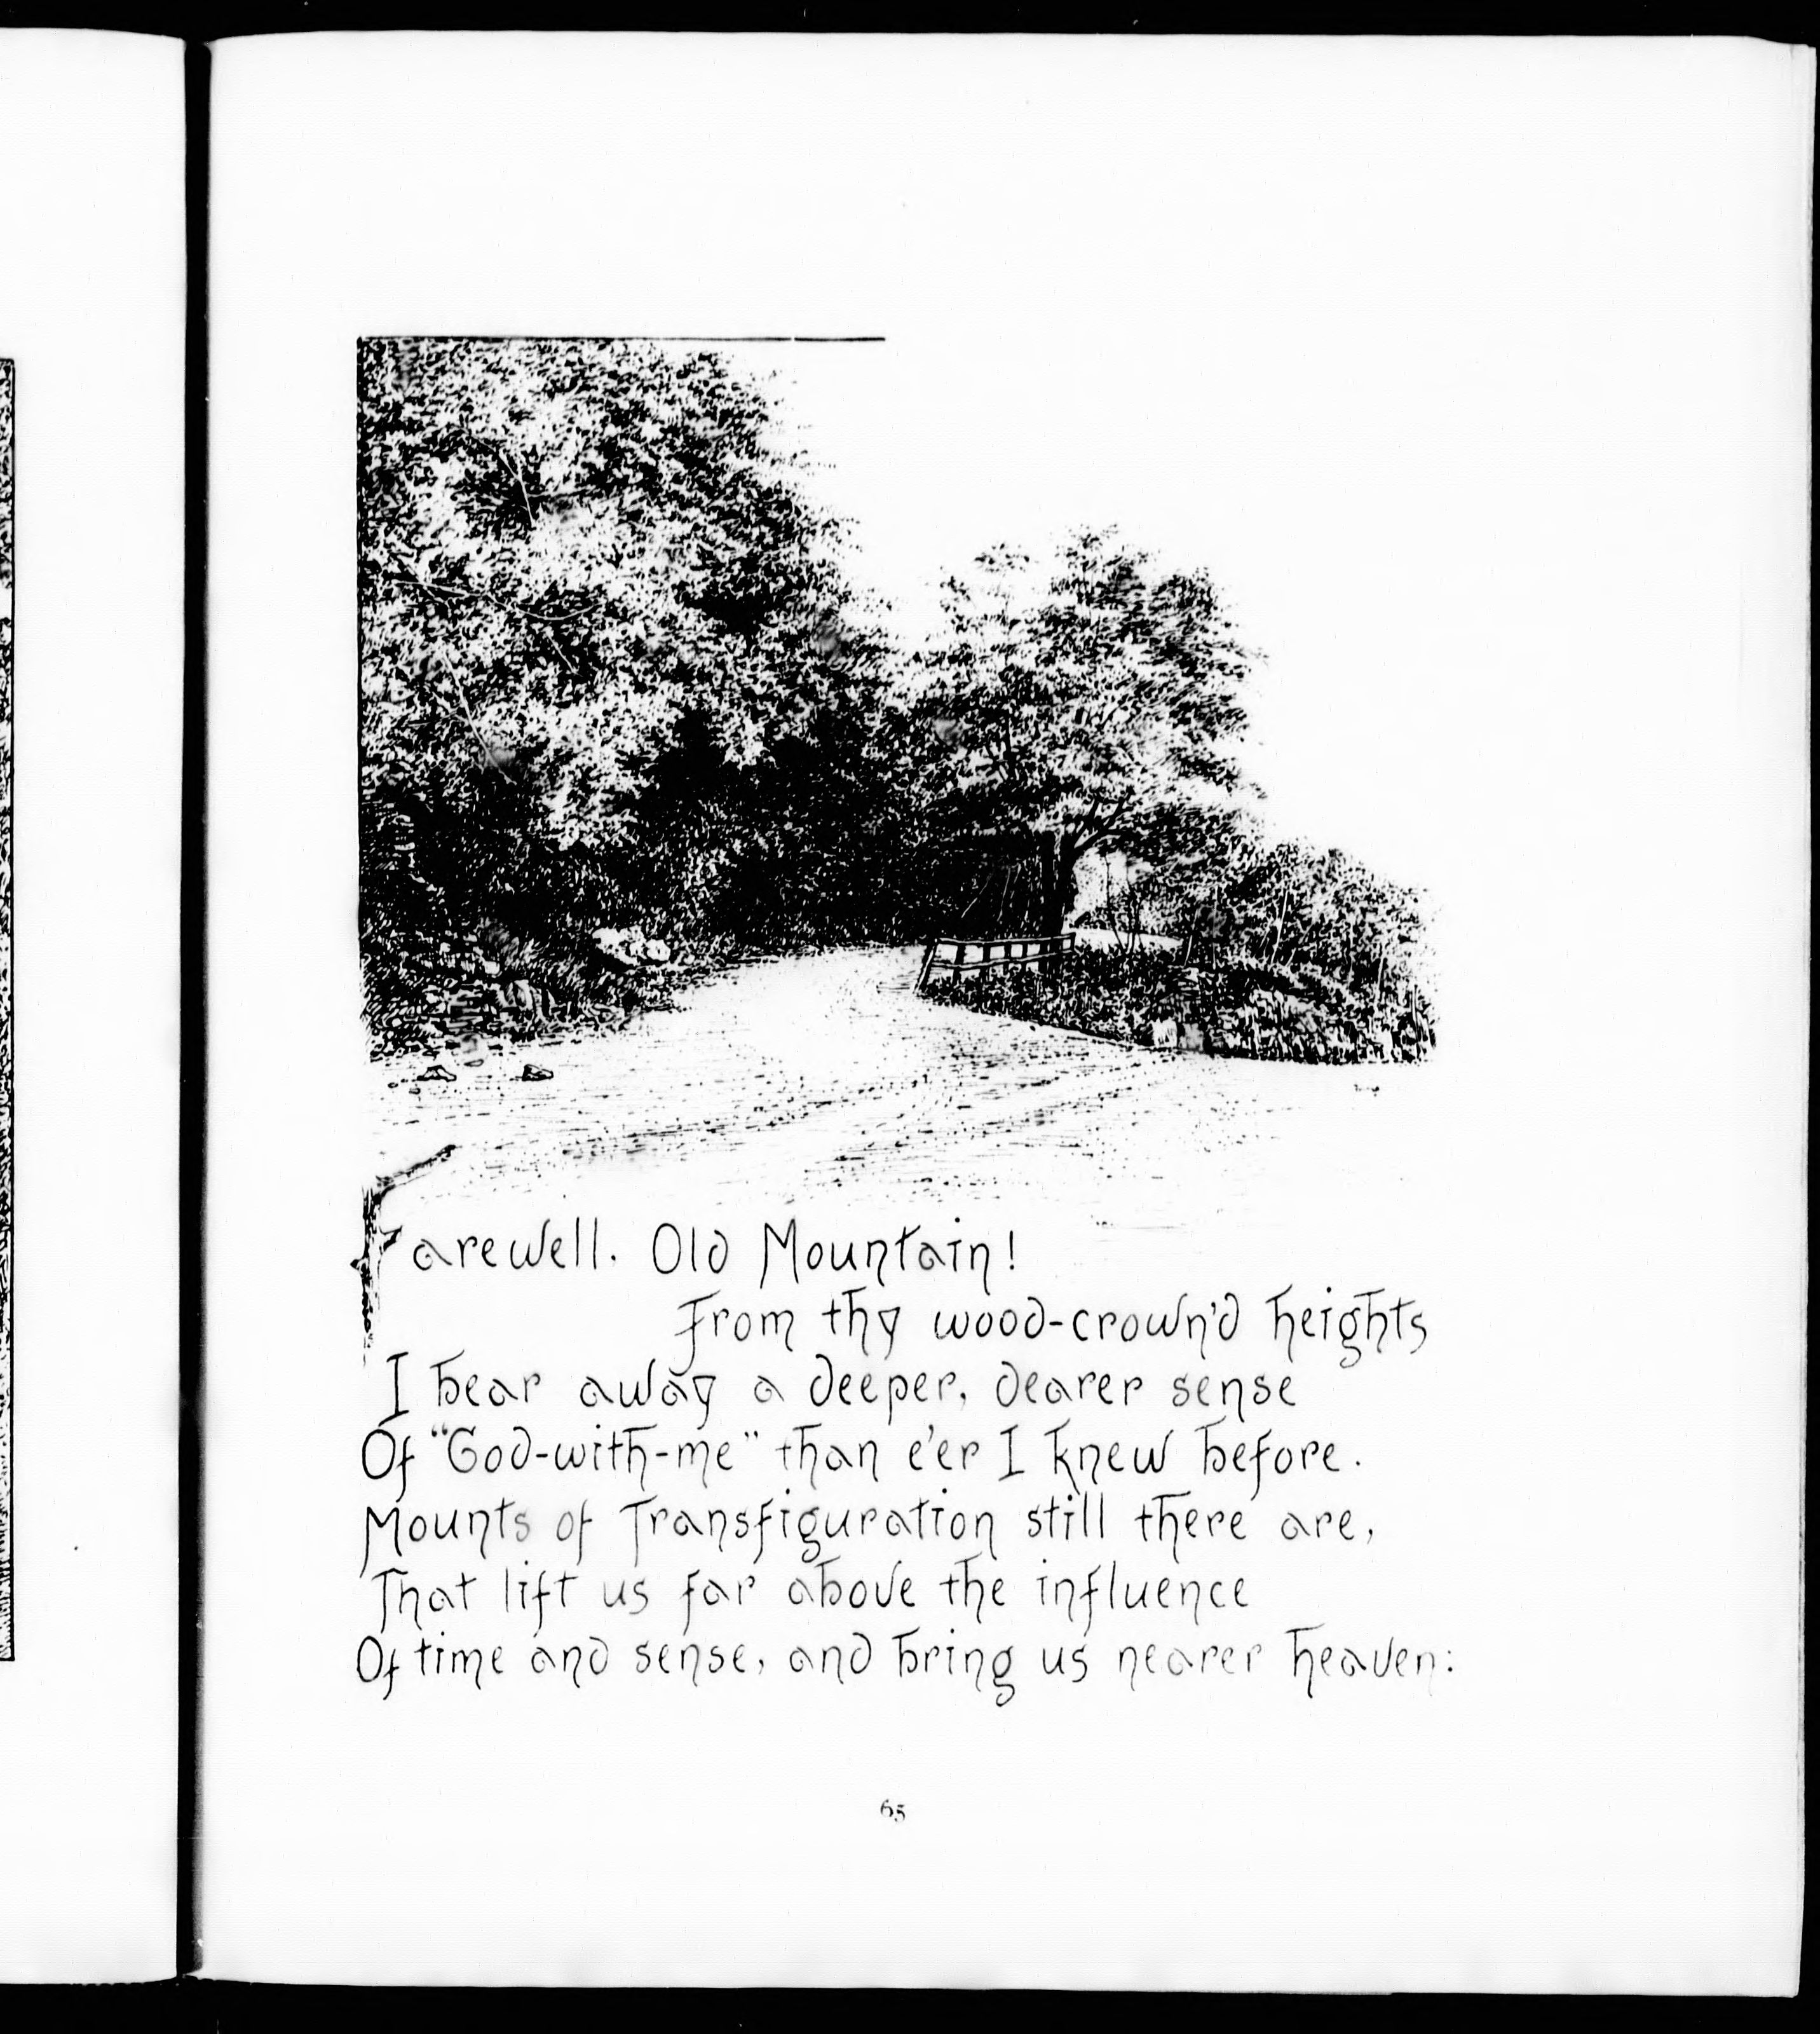 Farewell. Old Mountain!
From thy wood-crown'd heights
I bear away a deeper, dearer sense
Of "God-with-me" than e'er I knew before.
Mounts of Transfiguration still there are,
That lift us far above the influence
Of time and sense, and bring us nearer heaven:
65